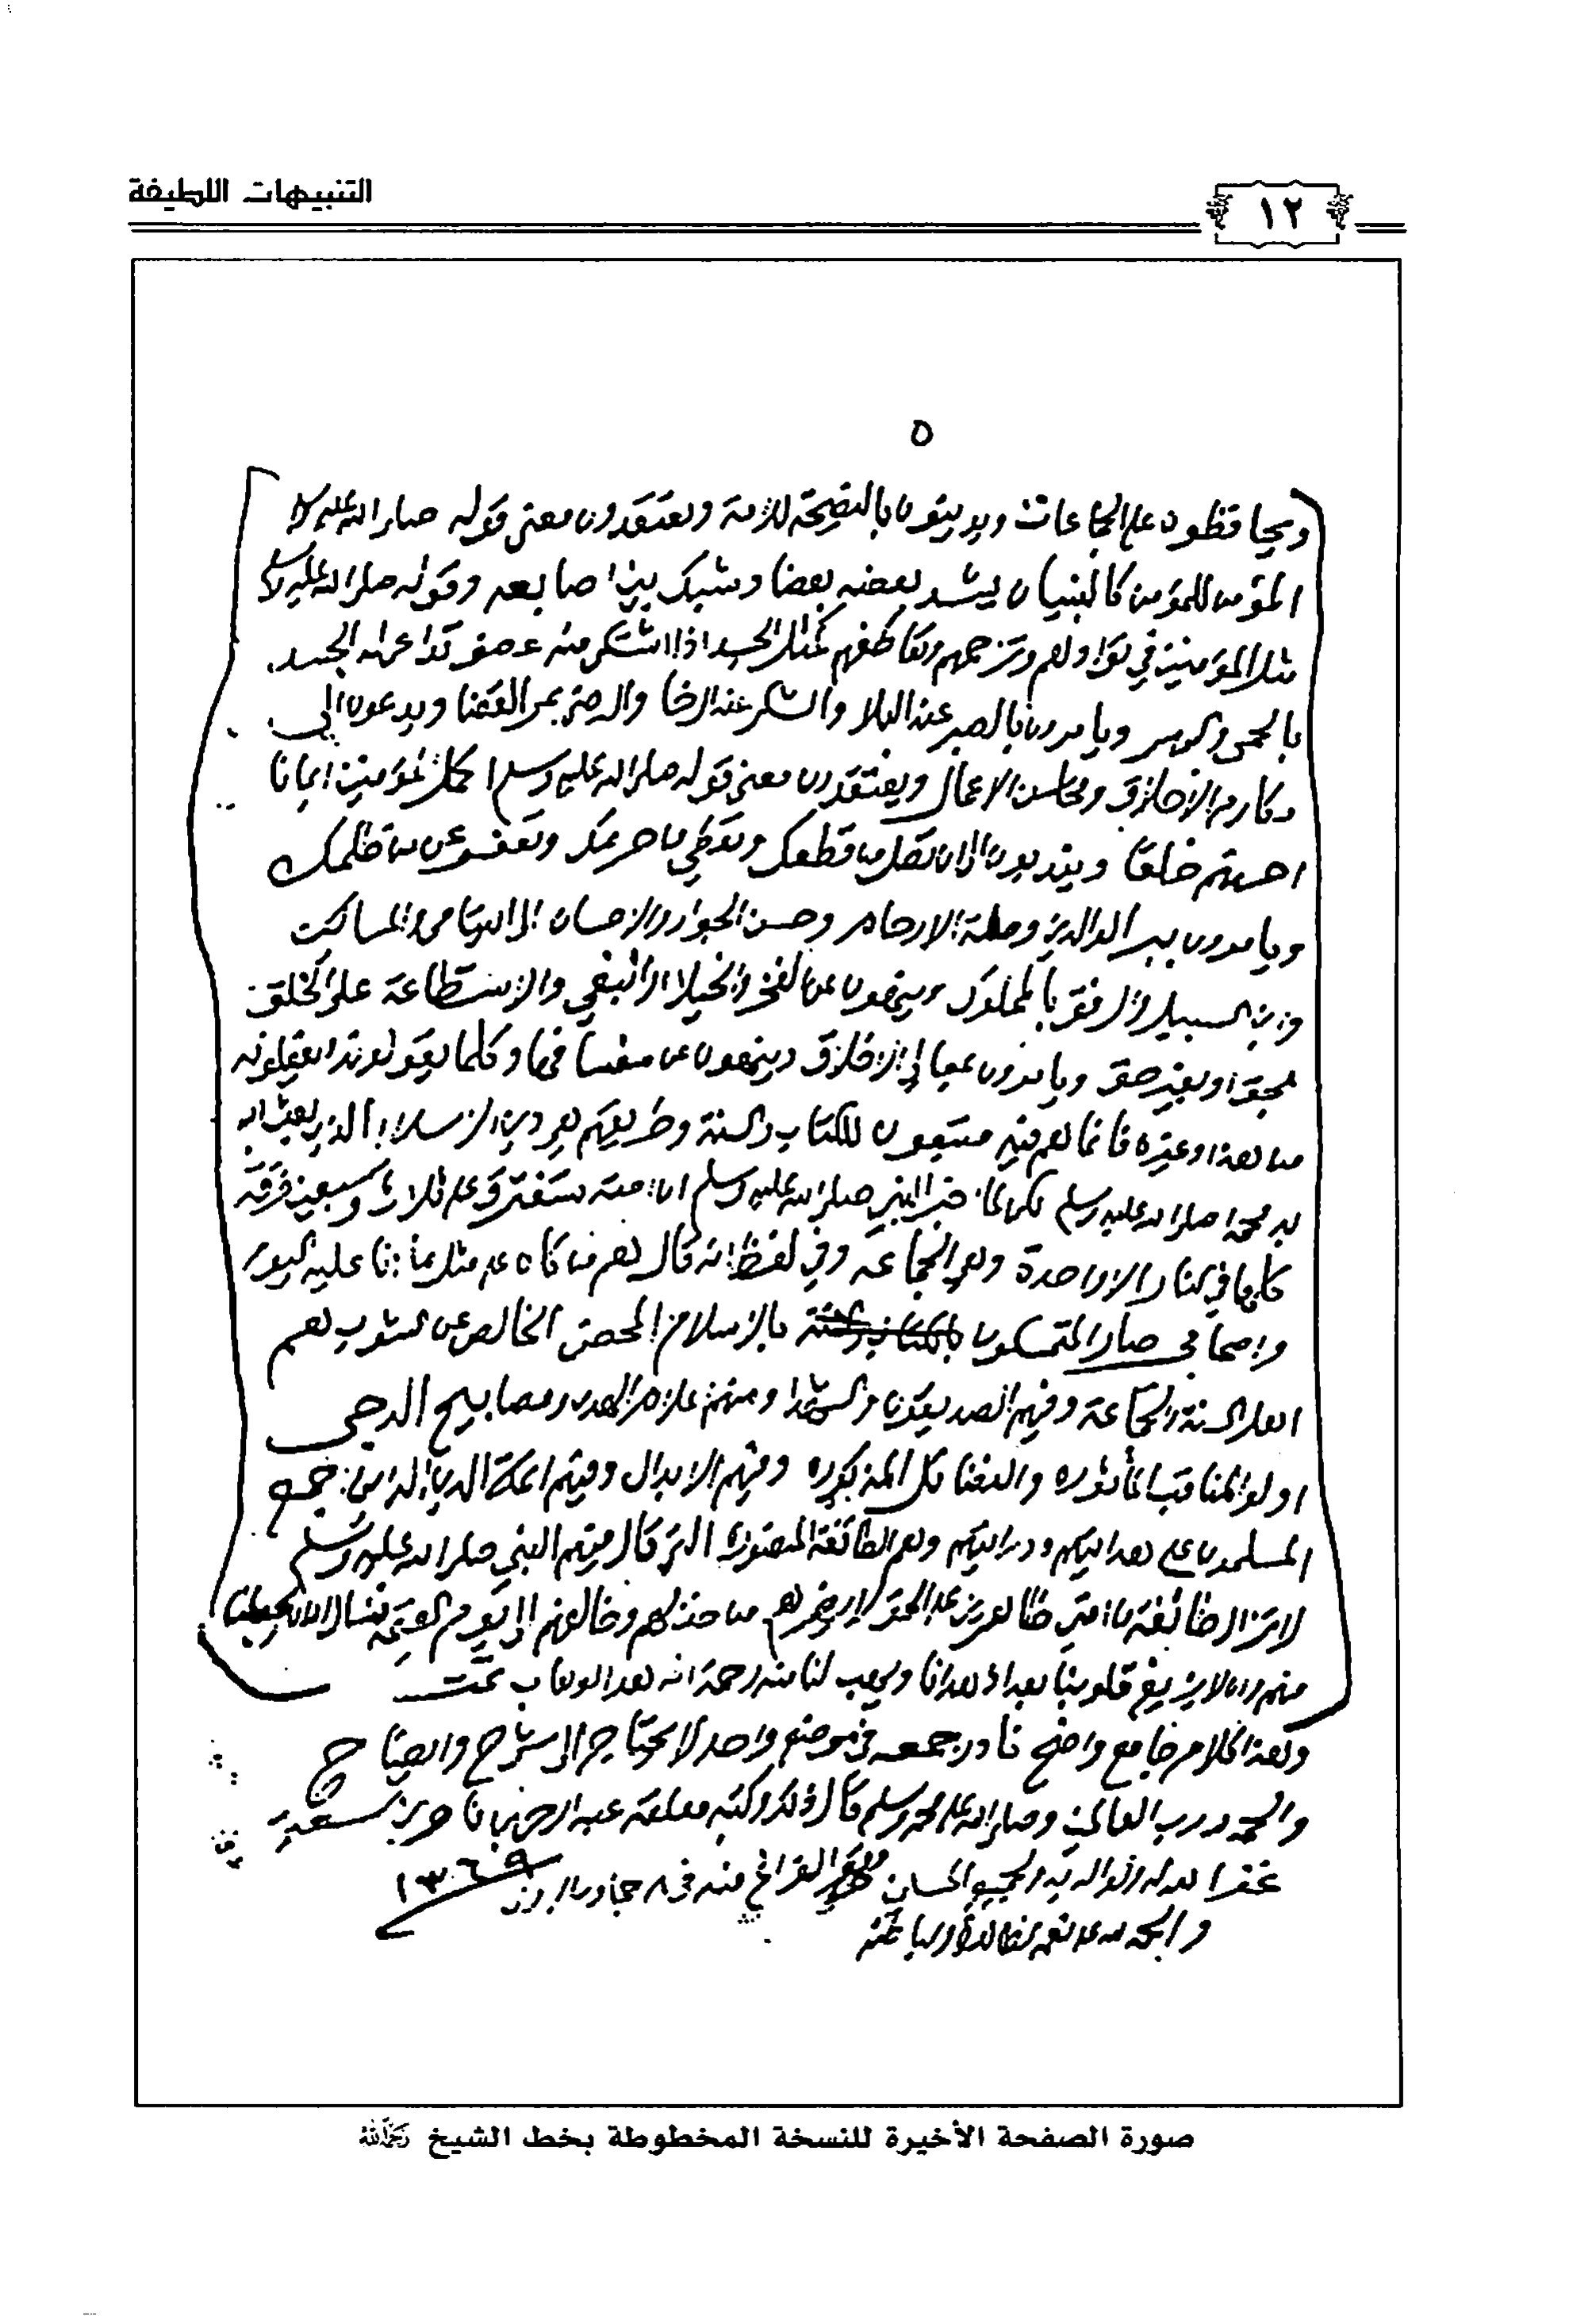 التنبيهات اللطيفة
١٢
٥
ويحافظون على الجماعات ويدينون بالنصيحة للأمة ويعتقدون معنى قوله صلى الله عليه وسلم
المؤمن للمؤمن كالبنيان يشد بعضه بعضا وشبك بين اصابعه وقوله صلى الله عليه وسلم
مثل المؤمنين في توادهم وتراحمهم وتعاطفهم كمثل الجسد اذا اشتكى منه عضو تداعى له الجسد
بالحمى والسهر ويامرون بالصبر عند البلا والشكر عند الرخا والرضى بمر القضا ويدعون الى
مكارم الاخلاق ومحاسن الاعمال ويعتقدون معنى قوله صلى الله عليه وسلم اكمل المؤمنين ايمانا
احسنهم خلقا ويندبون الى ان تصل من قطعك وتعطي من حرمك وتعفو عن من ظلمك
ويامرون ببر الوالدين وصلة الارحام وحسن الجوار والاحسان الى اليتامى والمساكين
وابن السبيل والرفق بالمملوك وينهون عن الفخر والخيلا والبغي والاستطاعة على الخلق
بحق او بغير حق ويامرون بمعالي الاخلاق وينهون عن سفسافها وكلما يقولونه او يفعلونه
من هذا وغيره فانما هم فيه متبعون للكتاب والسنة وطريقهم هو دين الاسلام الذي بعث الله
به محمدا صلى الله عليه وسلم لكن لما اخبر النبي صلى الله عليه وسلم ان امته ستفترق على ثلاث وسبعين فرقة
كلها في النار الا واحدة وهي الجماعة وفي لفظ انه قال هم من كان على مثل ما انا عليه اليوم
واصحابي صار المتمسكون بالاسلام المحض الخالص عن الشوب هم
اهل السنة والجماعة وفيهم الصديقون والشهدا ومنهم اعلام الهدى ومصابيح الدجى
اولو المناقب المأثوره والفضائل المذكوره وفيهم الابدال وفيهم ائمة الدين الذين اجمع
المسلمون على هدايتهم ودرايتهم وهم الطائفة المنصورة التي قال فيهم النبي صلى الله عليه وسلم
لا تزال طائفة من امتي ظاهرين على الحق لا يضرهم من خذلهم ولا من خالفهم الى يوم القيمة نسال الله ان يجعلنا
منهم وان لا يزيغ قلوبنا بعد اذ هدانا ويهب لنا منه رحمة انه هو الوهاب تمت
وهذا كلام جامع واضح نادر جمعه في موضع واحد لا يحتاج الى شرح وايضاح
والحمد لله رب العالمين وصلى الله على محمد وسلم قال ذلك وكتبه معلقه عبد الرحمن بن ناصر بن سعدي
غفر الله له ولوالديه ولجميع المسلمين الفراغ منه في ٨ جمادى الاول ١٣٦٩
والحمد لله على نعمه
صورة الصفحة الأخيرة للنسخة المخطوطة بخط الشيخ رحمه الله